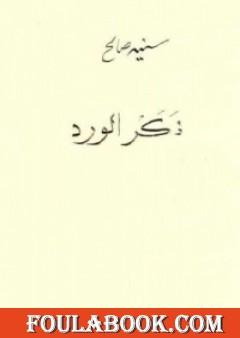 سنية صالح
ذَكَر الورد
FOULABOOK.COM